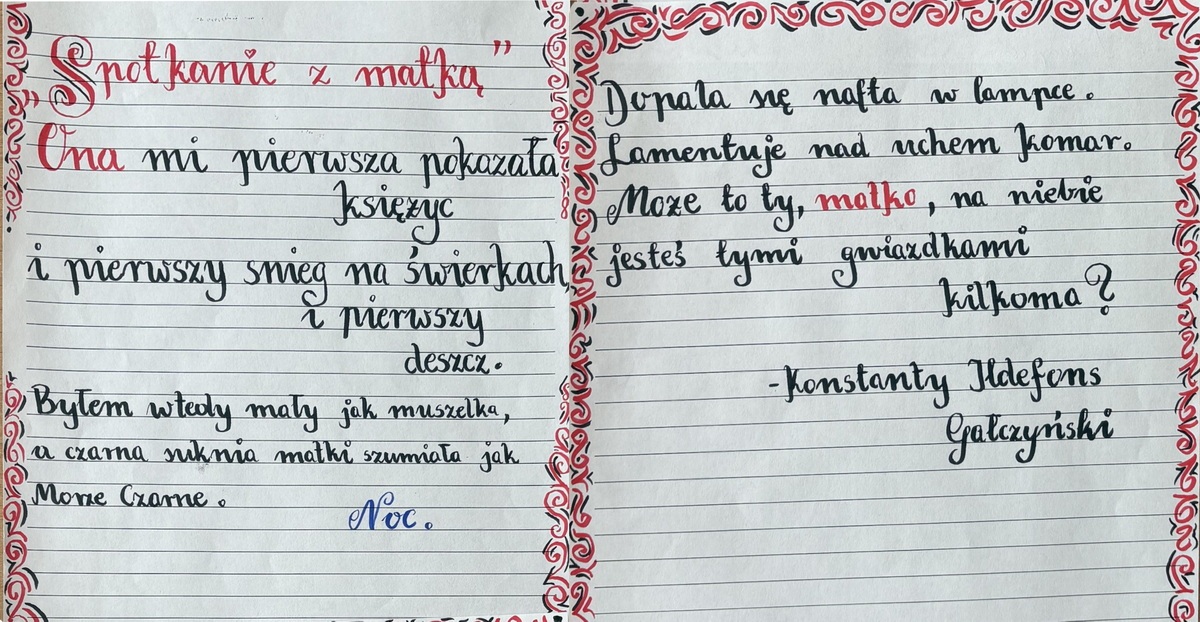 „Spotkanie z matką”
Ona mi pierwsza pokazała
księżyc
i pierwszy snieg na świerkach,
i pierwszy
deszcz.
Byłem wtedy mały jak muszelka,
a czarna suknia matki szumiała jak
Morze Czarne.
Noc.
Dopala się nafta w lampce.
Lamentuje nad uchem komar.
Może to ty, matko, na niebie
jesteś tymi gwiazdkami
kilkoma?
-Konstanty Ildefons
Gałczyński